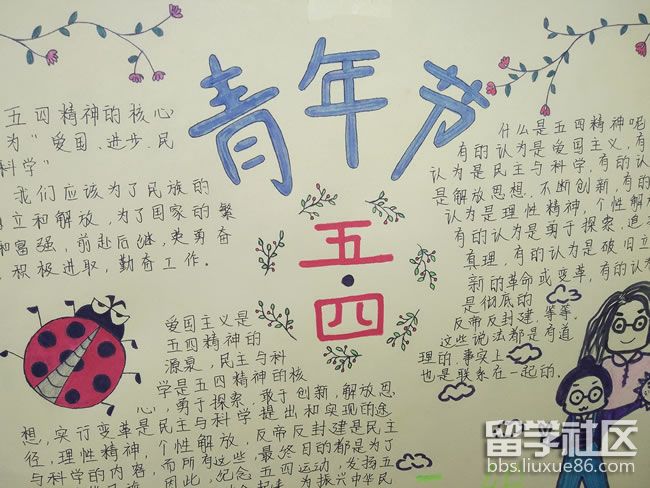 青年节
五·四
五四精神的核心
为"爱国、进步、民
科学"
我们应该为了民族的
自立和解放,为了国家的繁
和富强,前赴后继,英勇奋
积极进取,勤奋工作.
爱国主义是
五四精神的
源泉,民主与科
学是五四精神的核
心,勇于探索、敢于创新,解放思
想,实行变革是民主与科学提出和实现的途
径,理性精神,个性解放,反帝反封建是民主
与科学的内容,而所有这些,最终目的都是为了
因此,纪念五四运动,发扬五
为振兴中华民
什么是五四精神呢
有的认为是爱国主义,有
认为是民主与科学,有的认
是解放思想、不断创新,有的
认为是理性精神,个性解放
有的认为是勇于探索,追
真理,有的认为是破旧立
新的革命或变革,有的认为
是彻底的
反帝反封建,等等.
这些说法都是有道
理的.事实上
也是联系在一起的.
留学社区
bbs.liuxue86.com